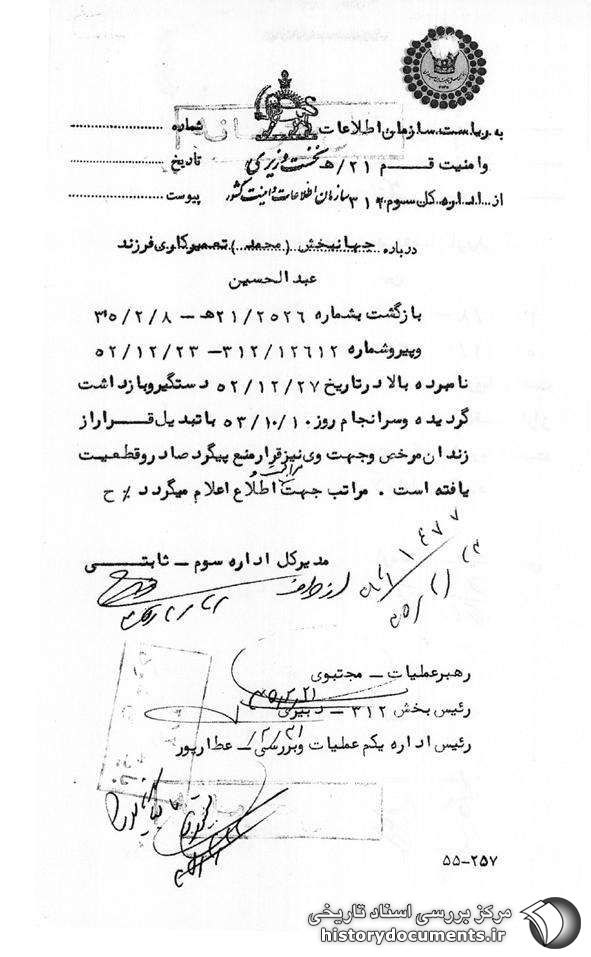 به ریاست سازمان اطلاعات
و امنیت قـــم ۲۱/ هـ
نخست وزیری
از اداره کل سوم ۳۱۲
سازمان اطلاعات و امنیت کشور
شماره
تاریخ
پیوست
درباره جهانبخش (مجعد) تعمیرکاری فرزند
عبدالحسین
بازگشت بشماره ۲۱/۲۵۲۶هـ – ۳۵/۲/۸
وپیرو شماره ۳۱۲/۱۲۶۱۲ – ۵۲/۱۲/۲۳
نامبرده بالا در تاریخ ۵۲/۱۲/۲۷ دستگیر و بازداشت
گردیده و سرانجام روز ۵۳/۱۰/۱۰ با تبدیل قــرار از
زندان مرخص و جهت وی نیز قرار منع پیگرد صادر و قطعیت
یافته است . مراتب جهت اطلاع اعلام میگردد٪ ح
مدیرکل اداره سوم – ثابتـــی
از طرف
رهبر عملیات – مجتبوی
۳۵/۲/۲۱
رئیس بخش ۳۱۲ – دبیری
رئیس اداره یکم عملیات و بررسی – عطارپور
۵۵-۲۵۷
مرکز بررسی اسناد تاریخی
historydocuments.ir